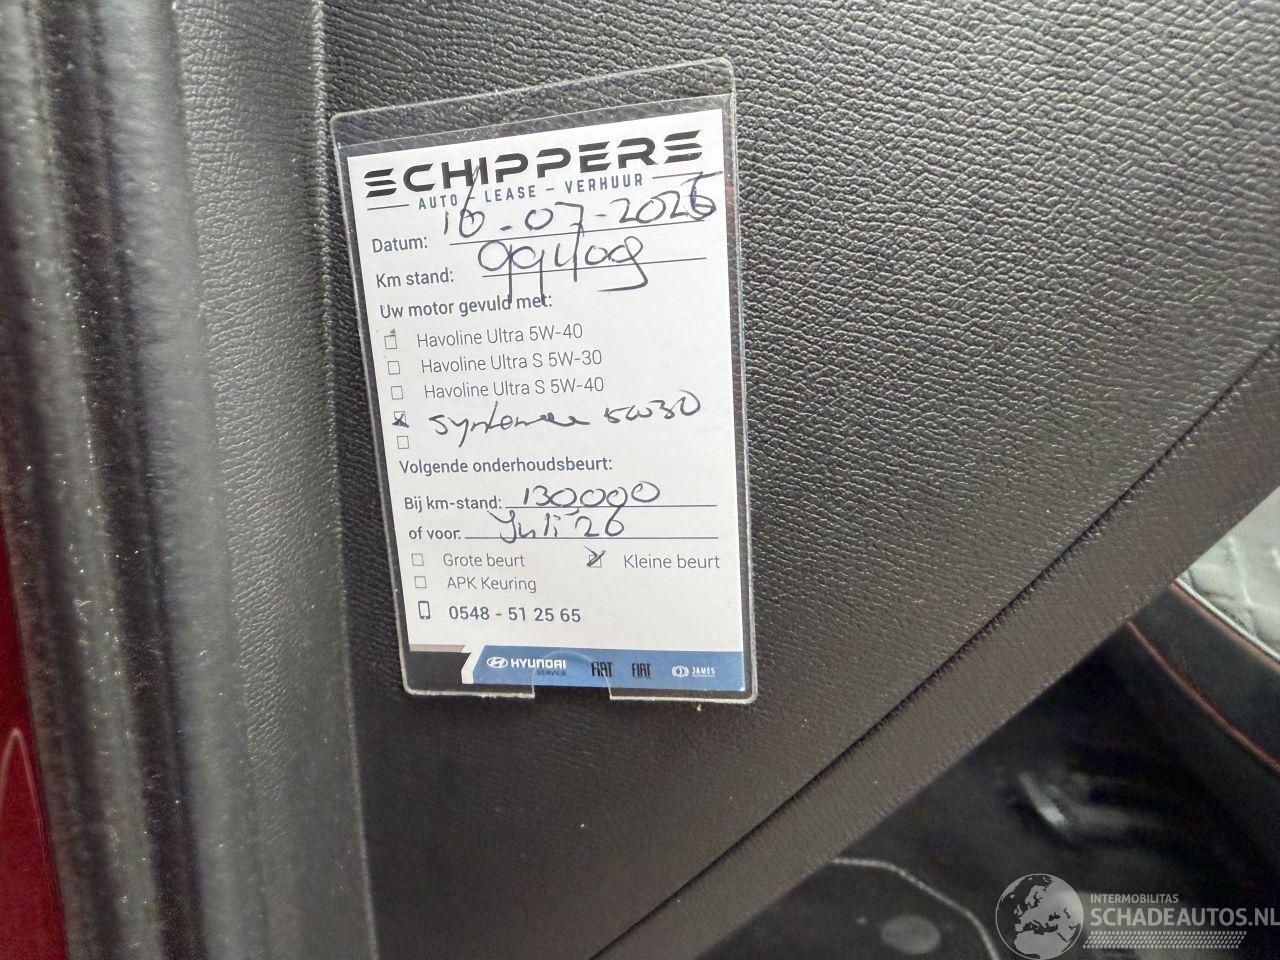 SCHIPPERS
AUTO - LEASE - VERHUUR
Datum: 16-07-2025
Km stand: 99409
Uw motor gevuld met:
Havoline Ultra 5W-40
Havoline Ultra S 5W-30
Havoline Ultra S 5W-40
5W30
Volgende onderhoudsbeurt:
Bij km-stand: 130.000
of voor. Juli 26
Grote beurt Kleine beurt
APK Keuring
0548 - 51 25 65
HYUNDAI SERVICE FIAT FIAT JAMES
INTERMOBILITAS
SCHADEAUTOS.NL